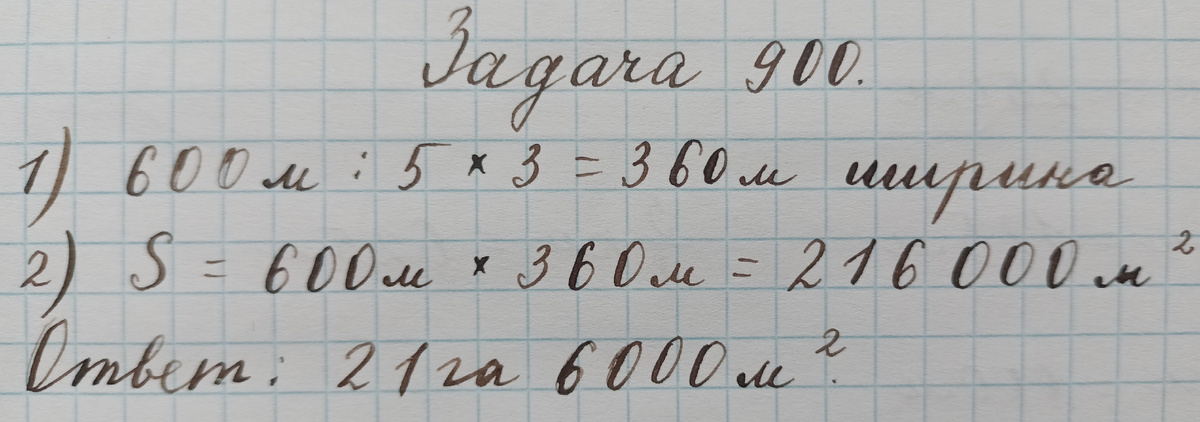 Задача 900.
1) 600м : 5 × 3 = 360м ширина
2) S = 600м × 360м = 216000м²
Ответ: 21га 6000м².